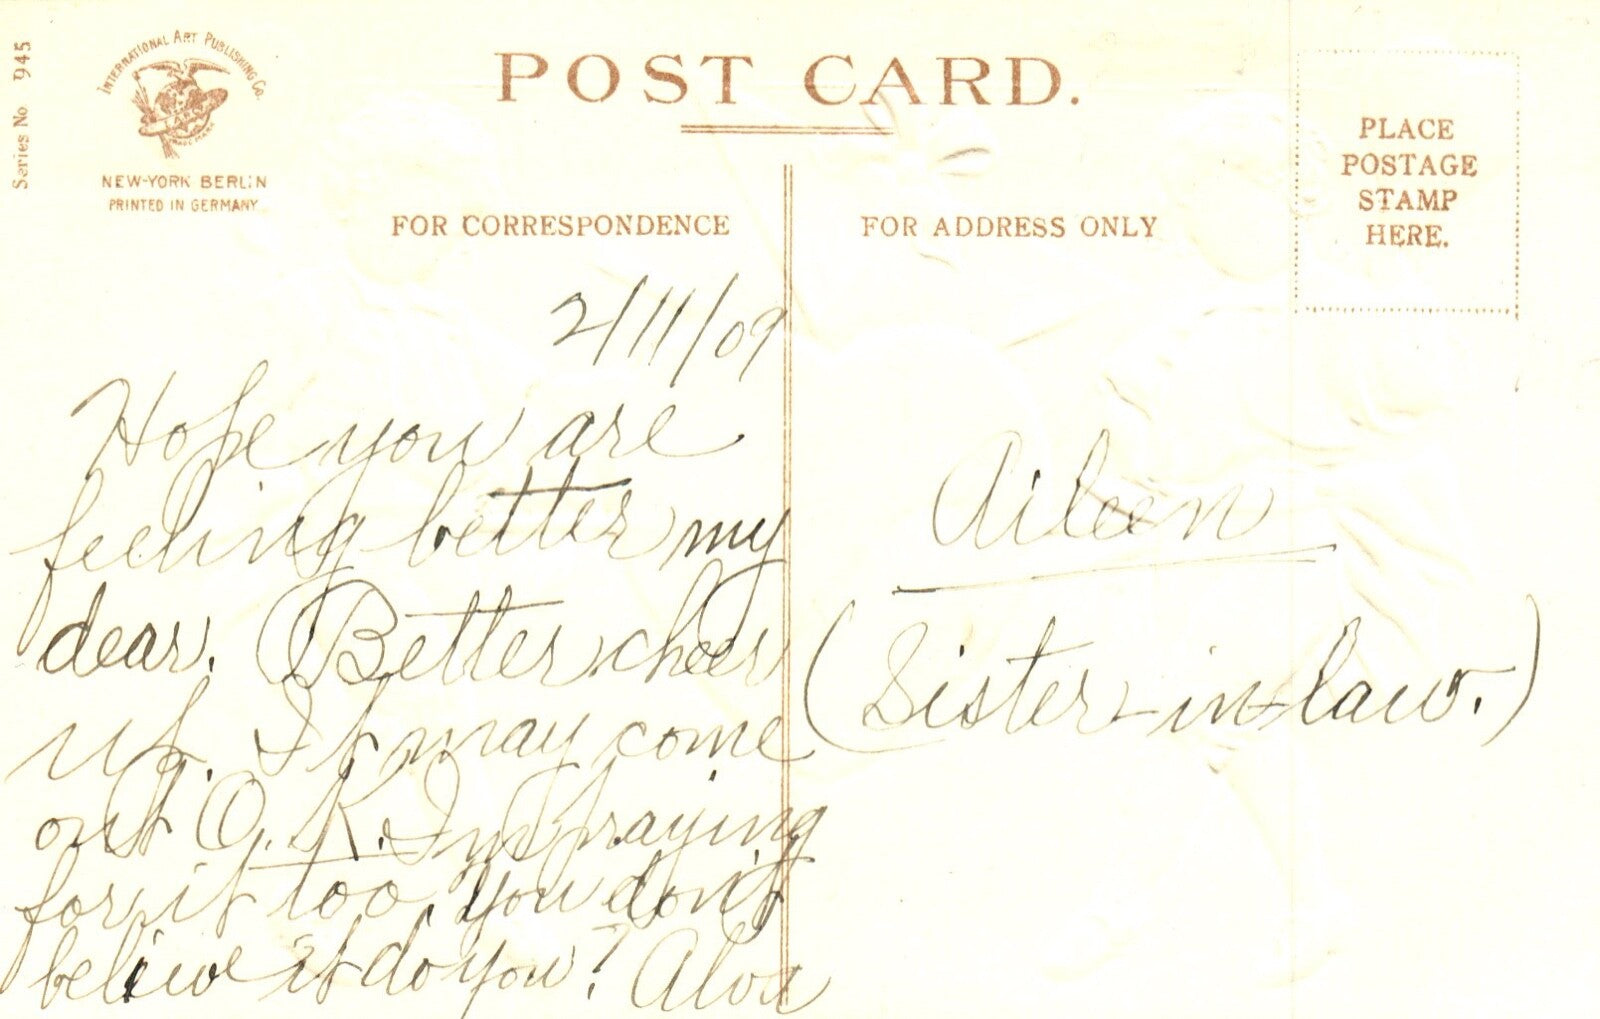 Series No 945
INTERNATIONAL ART PUBLISHING CO.
NEW-YORK BERLIN
PRINTED IN GERMANY
POST CARD.
FOR CORRESPONDENCE
FOR ADDRESS ONLY
PLACE
POSTAGE
STAMP
HERE.
2/11/09
Hope you are
feeling better my
dear. Better cheer
up. It may come
out O.K. Im praying
for it too, you don't
believe it do you? Alva
Aileen
(Sister-in-law.)